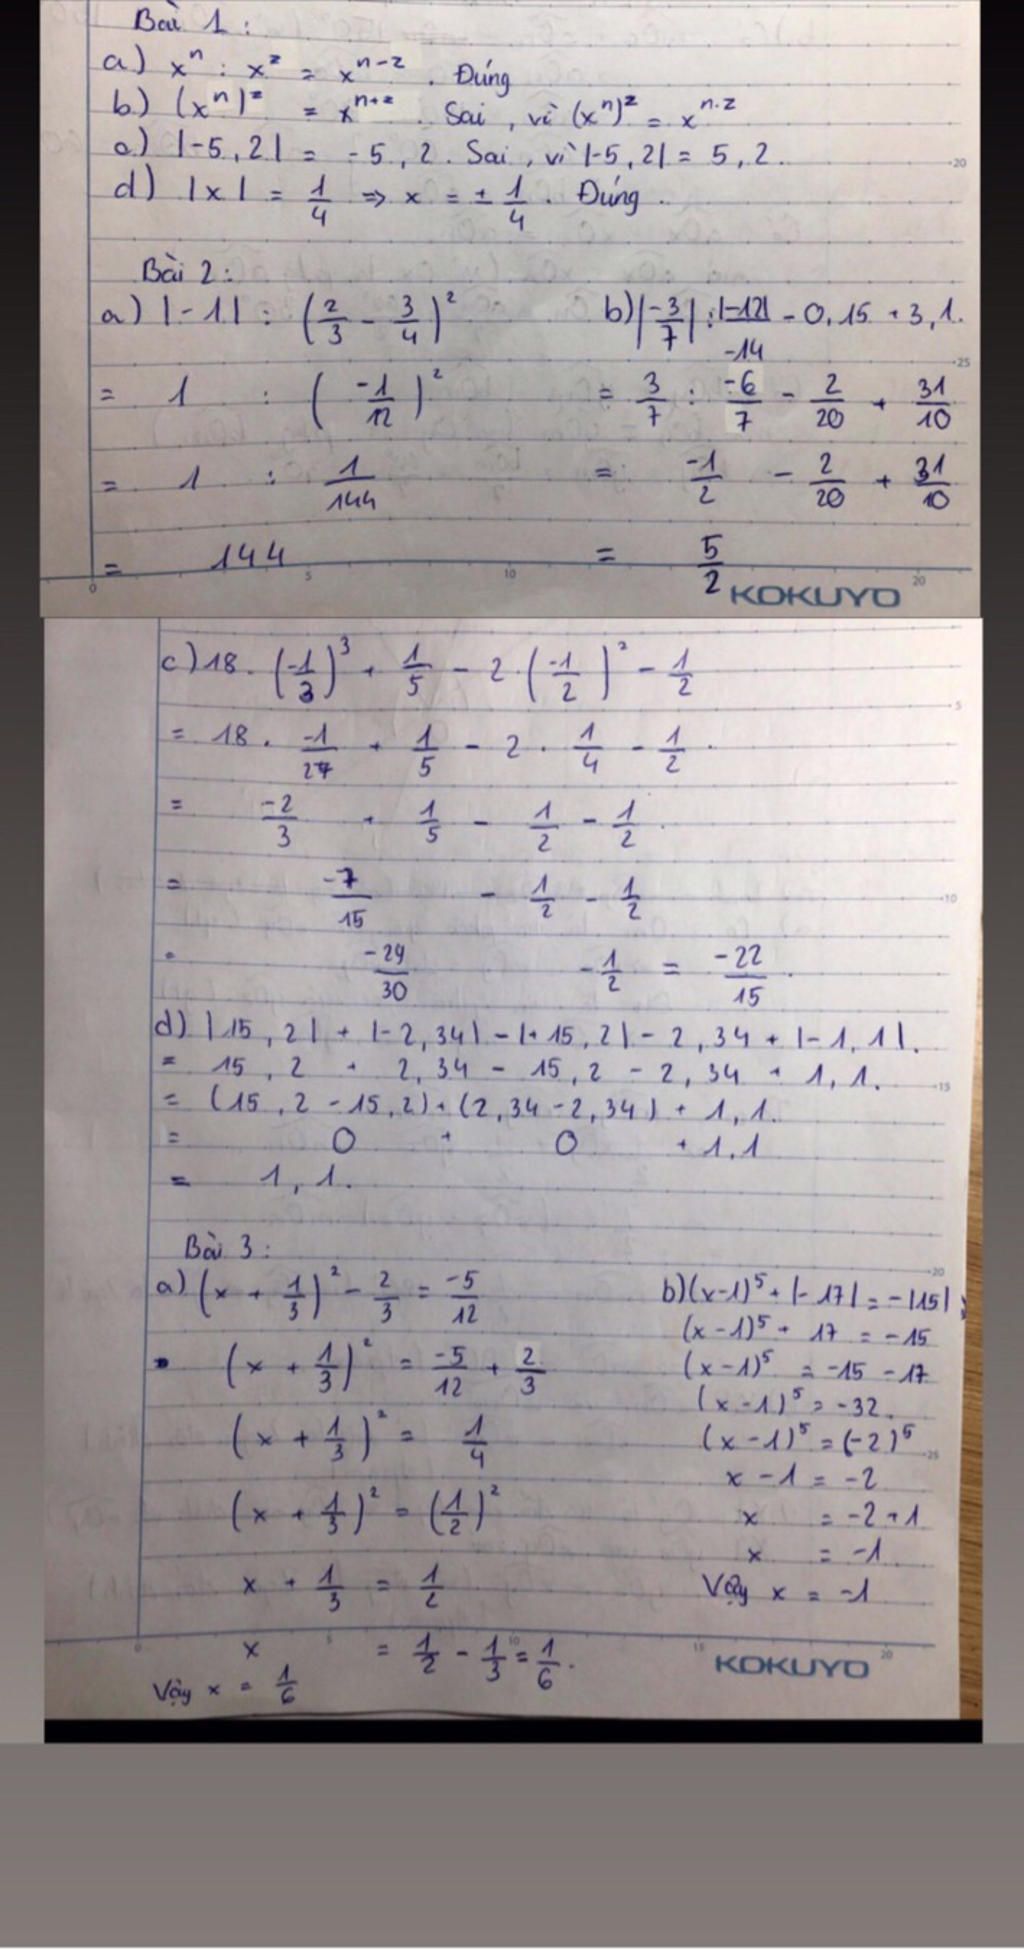 Bài 1 :
a) xⁿ : x^z = x^(n-z) . Đúng
b) (xⁿ)^z = x^(n+z) . Sai , vì (xⁿ)^z = x^(n.z)
c) |-5,2| = -5,2 . Sai , vì |-5,2| = 5,2.
d) |x| = 1/4 => x = ± 1/4 . Đúng .
Bài 2 :
a) |-1| : (2/3 - 3/4)²
= 1 : (-1/12)²
= 1 : 1/144
= 144
b) |-3/7| : |-12|/-14 - 0,15 + 3,1.
= 3/7 : -6/7 - 2/20 + 31/10
= -1/2 - 2/20 + 31/10
= 5/2
KOKUYO
c) 18 . (-1/3)³ + 1/5 - 2 . (-1/2)² - 1/2
= 18 . -1/27 + 1/5 - 2 . 1/4 - 1/2 .
= -2/3 + 1/5 - 1/2 - 1/2 .
= -7/15 - 1/2 - 1/2
= -29/30 - 1/2 = -22/15 .
d) |15,2| + |-2,34| - |+15,2| - 2,34 + |-1,1|.
= 15,2 + 2,34 - 15,2 - 2,34 + 1,1.
= (15,2 - 15,2) + (2,34 - 2,34) + 1,1.
= 0 + 0 + 1,1
= 1,1.
Bài 3 :
a) (x + 1/3)² - 2/3 = -5/12
(x + 1/3)² = -5/12 + 2/3
(x + 1/3)² = 1/4
(x + 1/3)² = (1/2)²
x + 1/3 = 1/2
x = 1/2 - 1/3 = 1/6 .
Vậy x = 1/6
b) (x-1)⁵ + |-17| = -|15|
(x-1)⁵ + 17 = -15
(x-1)⁵ = -15 - 17
(x-1)⁵ = -32.
(x-1)⁵ = (-2)⁵
x - 1 = -2
x = -2 + 1
x = -1
Vậy x = -1
KOKUYO